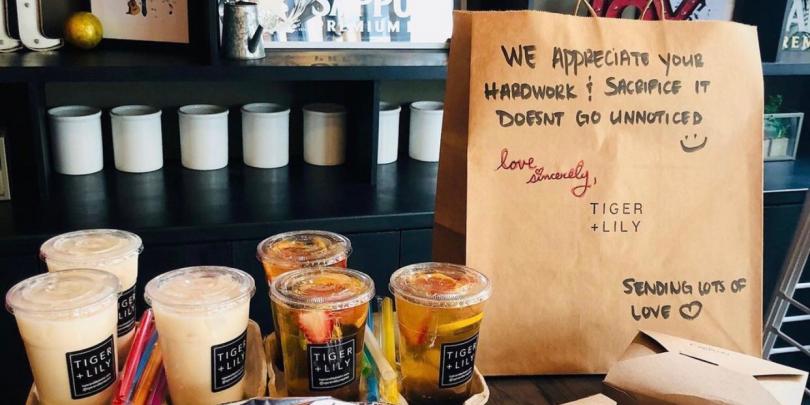 SAPPO
PREMIUM
WE APPRECIATE YOUR
HARDWORK & SACRIFICE IT
DOESNT GO UNNOTICED
love
sincerely,
TIGER
+LILY
SENDING LOTS OF
LOVE
TIGER
+LILY
TIGER
+LILY
TIGER
+LILY
TIGER
+LILY
TIGER
+LILY